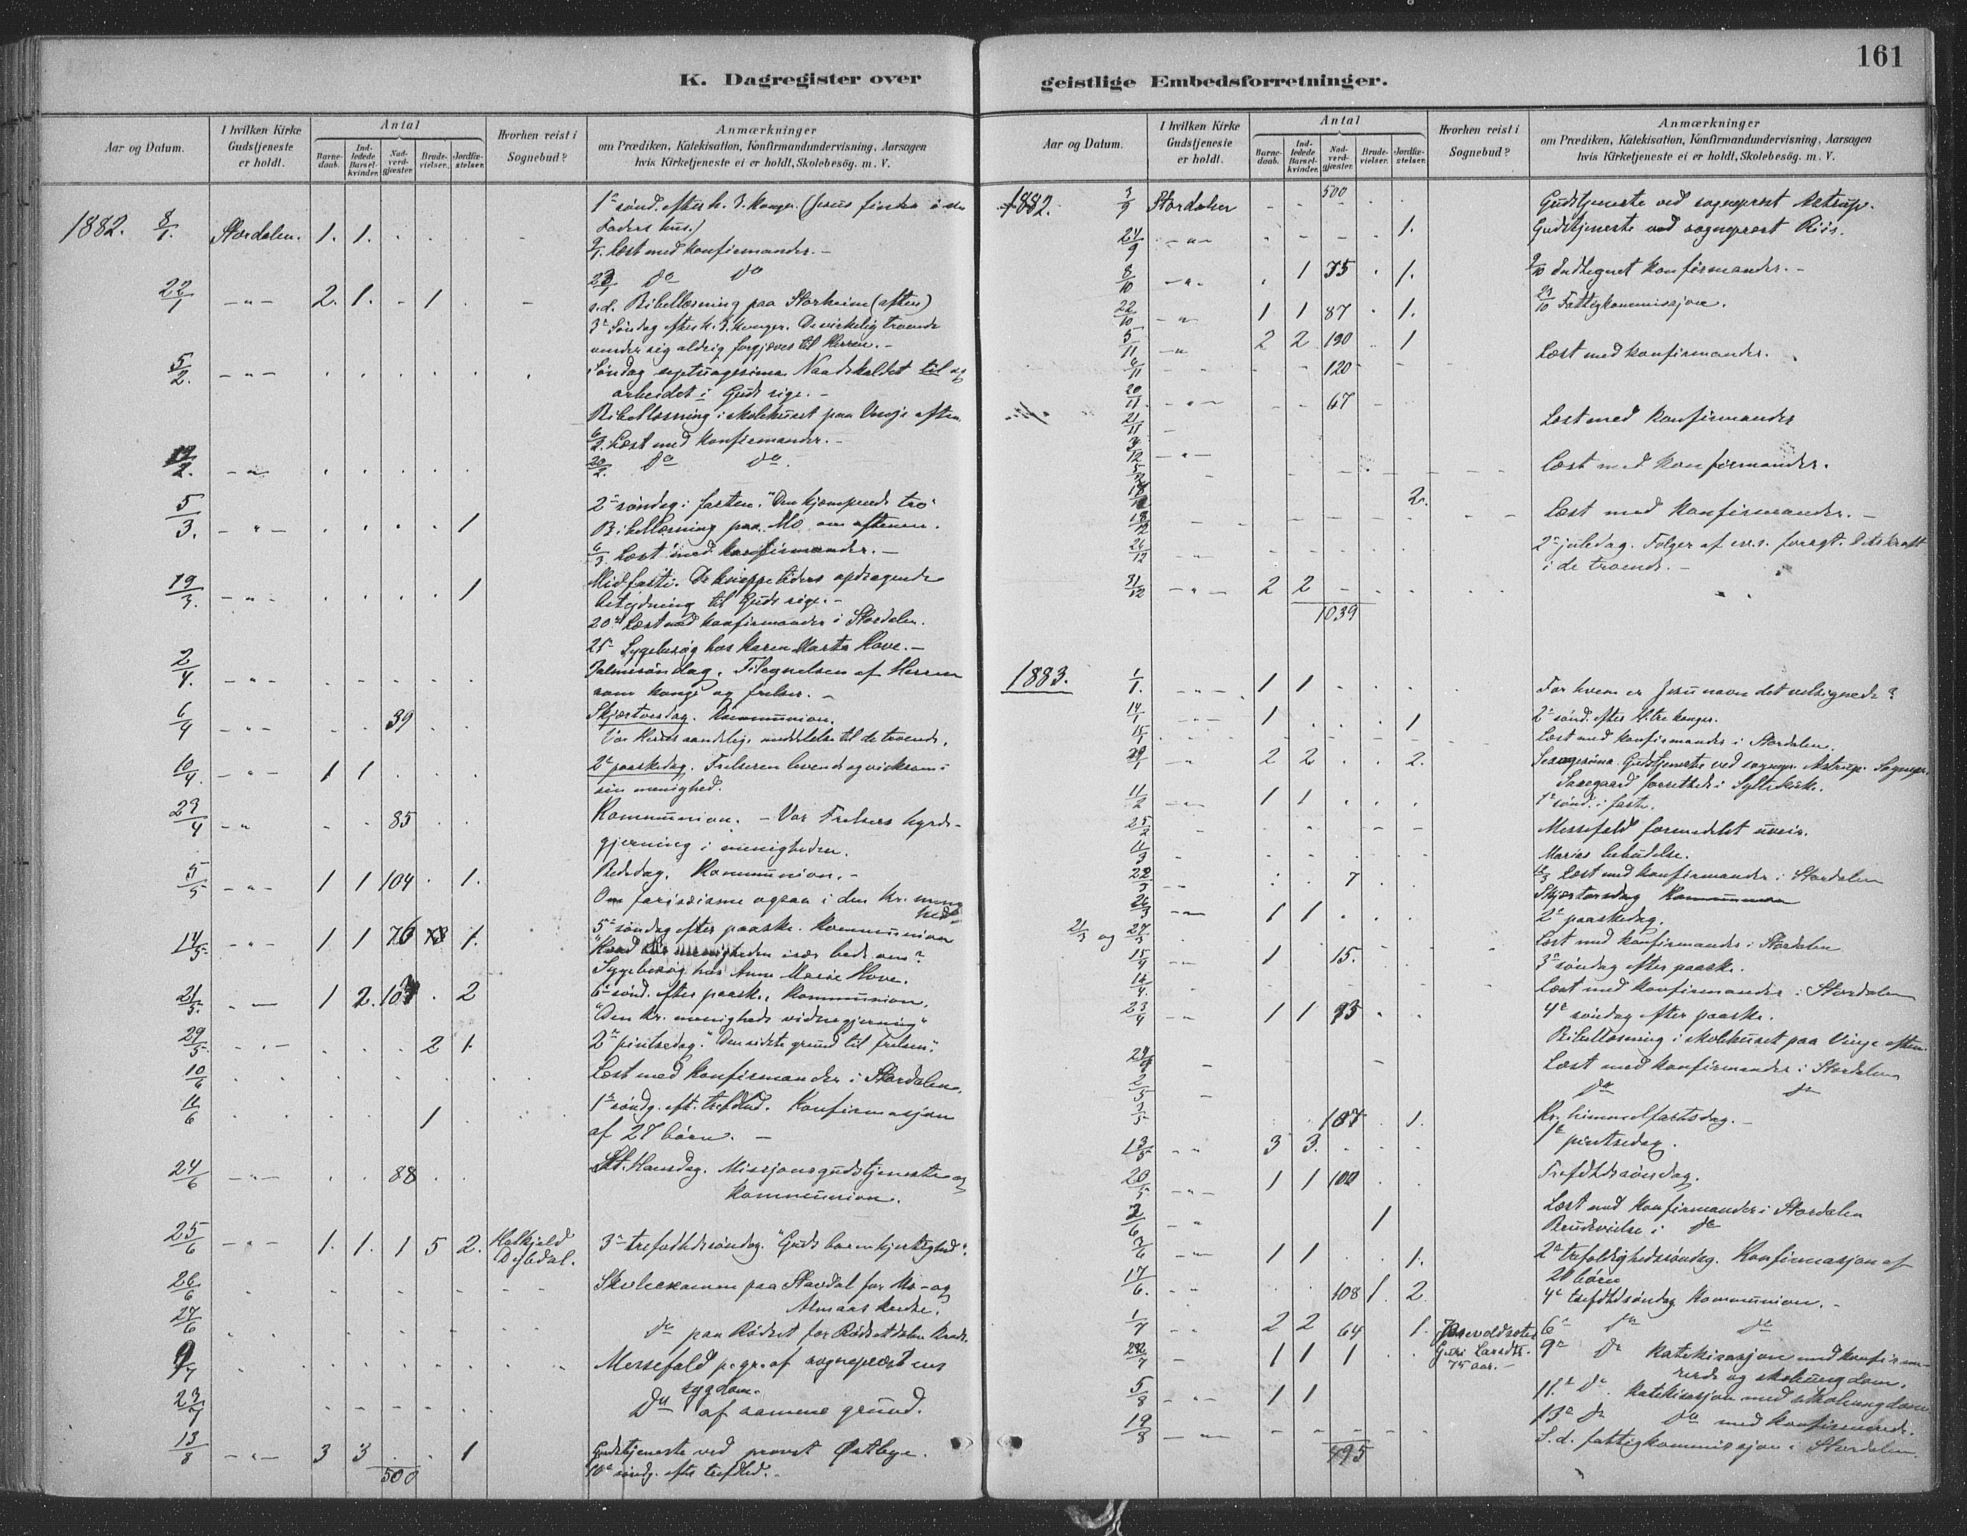 161
K. Dagregister over
geistlige Embedsforretninger.
Aar og Datum.
I hvilken Kirke Gudstjeneste er holdt.
Antal
Barnedaab.
Indledede Barselkvinder.
Nadverdgjæster.
Brudevielser.
Jordfæstelser.
Hvorhen reist i Sognebud?
Anmærkninger
om Prædiken, Katekisation, Konfirmandundervisning, Aarsagen
hvis Kirketjeneste ei er holdt, Skolebesøg. m. V.
1ª sønd. efter h. 3. konger. (Jesus findes i sin
1882. 8/1. Stordalen. 1. 1. Faders hus.)
9/1. Læst med konfirmander. —
dº dº
22/1 — „ — 2. 1. - 1 s.d. Bibellæsning paa Storheim (aften)
3ª Søndag efter h. 3. konger. De virkelig troende
vender sig aldrig forgjæves til Herren. —
5/2. — „ — Søndag septuagesima. Naadekaldet til og
arbeidet i Guds rige. —
Bibellæsning i skolehuset paa Vinje aften.
6/2. Læst med konfirmander. —
19/2. — „ — 20/2. dº dº.
5/3. — „ — 1 2ª søndag i fasten. "Den kjæmpende tro"
Bibellæsning paa Mo om aftenen.
6/3 Læst med konfirmander. —
19/3. — „ — 1 Midfaste. De knappe tiders opdragende
betydning til Guds rige. —
20de Læst med konfirmander i Stordalen.
25 Sygebesøg hos Karen Marta Hove. —
2/4. — „ — Palmesøndag. Tilegnelsen af Herren
som konge og frelser. —
6/4 — „ — 39 Skjærtorsdag. Kommunion.
Vor Herres aandelige meddelelse til de troende.
10/4. — „ — 1 1 2ª paaskedag. Frelseren levende og virksom i
sin menighed.
23/4 — „ 85 Kommunion. — Vor Frelsers hyrde-
gjerning i menigheden.
5/5 — „ — 1 1 104 . 1. Bededag. Kommunion. —
Om farisæisme ogsaa i den kr. menig
hed.
14/5. — „ — 1 1 76 1. 5ª søndag efter paaske. Kommunion
menigheden især bede om?
Sygebesøg hos Anne Marie Hove.
21/5. „ — 1 2. . 2 6ª sønd. efter paaske. Kommunion.
"Den kr. menigheds vidnegjerning"
29/5. 2 1. 2ª pintsedag. "Den sidste grund til frelsen".
10/6 Læst med konfirmander i Stordalen.
11/6 1 1ª søndg. eft. trefdhd. Konfirmasjon
af 27 børn. —
24/6 — „ — 88 St. Hansdag. Missjonsgudstjeneste og
Kommunion.
25/6 — „ — 1. 1. 1 5 2. Halkjeld
Dybdal. 3ª trefoldhdssøndag. "Guds barmhjertighed".
26/6 Skoleexamen paa Stavdal for Mo- og
Almaas kreds.
27/6 dº paa Rødset for Rødsetdalen kreds.
9/7 Messefald p. gr. af sogneprestens
sygdom.
23/7 Dº af samme grund.
13/8 — „ — 3 3 1 Gudstjeneste ved provst Østbye.
500 10ª søndg. efter trefdhd. —
500
1882. 3/9 Stordalen Gudstjeneste ved sogneprest Astrup.
24/9 — „ — 1. Gudstjeneste ved sogneprest Riis.
8/10 — „ . 1 75 . 1. 9/10 Indtegnet konfirmander. —
22/10 — „ 1 1 87 . 1. 23/10 Fattigkommissjon.
5/11 — „ 2 2 190 1
6/11 120 Læst med konfirmander.
20/11. — „ — 67
21/11 Læst med konfirmander
3/12 — „ —
5/12 Læst med konfirmander.
2.
18/12 Læst med konfirmander. —
26/12 — „ 2ª juledag. Følger af forøgt livskraft
i de troende. —
31/12 — „ — 2 2
1039
1883. 1/1. — „ — 1 1 For hvem er Jesu navn det velsignede?
14/1 — „ — 1 1 2ª sønd. efter H. tre konger.
15/1 Læst med konfirmander i Stordalen.
28/1 — „ — 2 2 . 2. Sexagesima. Gudstjeneste ved sognepr. Astrup. Sognepr.
Saxegaard forrettede i Sylte kirke.
11/2 — „ — 1 1 1ª sønd. i faste.
25/2 Messefald formedelst uveir.
11/3 Marias bebudelse.
22/3 — „ 7 12/3 Læst med konfirmander i Stordalen
Skjærtorsdag Kommunion
26/3 — „ — 1 1 2ª paaskedag.
21/3 og 27/3 Læst med konfirmander i Stordalen
15/4 — „ — 1 15. 3ª søndag efter paaske.
16/4. Læst med konfirmander i Stordalen
23/4 — „ — 1 1 93 4ª søndag efter paaske.
Bibellæsning i skolehuset paa Vinje aften.
24/4 Læst med konfirmander i Stordalen
2/5 dº dº
3/5 107 . 1. Kr. himmelfartsdag. —
13/5 — „ — 3 3. 1ª pintsedag.
20/5 — „ — 1 1 100 Trefdhdssøndag.
Læst med konfirmander i Stordalen
2/6 — „ 1 Brudevielse i dº
— „ — 1 1 1. 2ª trefoldighedssøndag. Konfirmasjon af
20 børn
17/6. 108 1 2. 4ª trefdhdssøndag Kommunion. —
1/7 2 2 64 1. 6ª dº dº
22/7 — „ — 1 1 1 Guri Larsdtr.
75 aar. — 9ª dº katekisasjon med konfirme-
rede og skoleungdom.
5/8 — „ 1 1 11ª dº. katekisasjon med skoleungdom
19/8 — „ — 13ª dº dº med konfirmerede
495 S.d. fattigkommissjon i Stordalen.